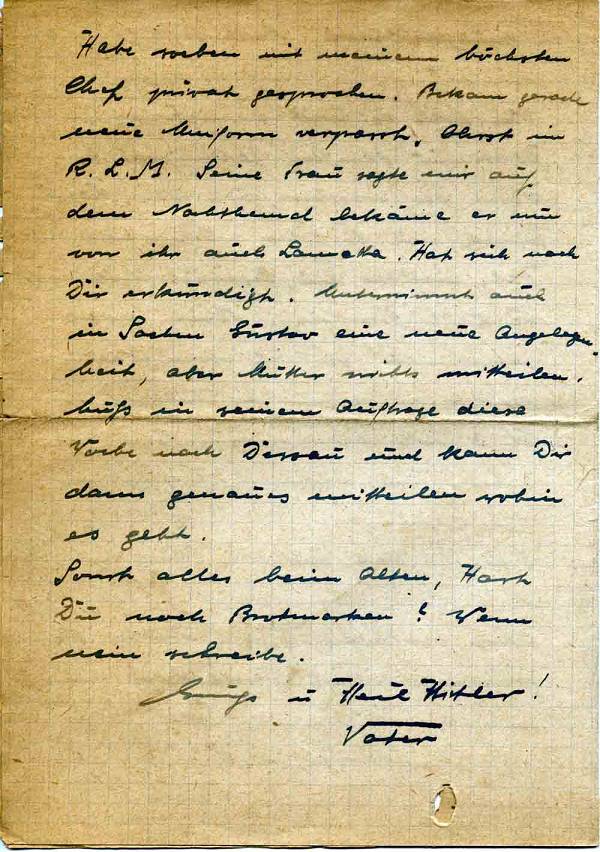 Habe soeben mit meinem höchsten
Chef privat gesprochen. Bekam gerade
neue Uniform verpasst. Oberst im
R. L. M. Seine Frau sagte mir auf
dem Nachthemd bekäme er nun
von ihr auch Lametta. Hat sich nach
Dir erkundigt. Unternimmt auch
in Sachen Gustav eine neue Angelegen-
heit, aber Mutter nichts mitteilen.
Muß in seinem Auftrage diese
Woche nach Dessau und kann Dir
dann genaues mitteilen wohin
es geht.
Sonst alles beim Alten, Hast
Du noch Brotmarken? Wenn
nein schreibe.
Gruß u Heil Hitler!
Vater